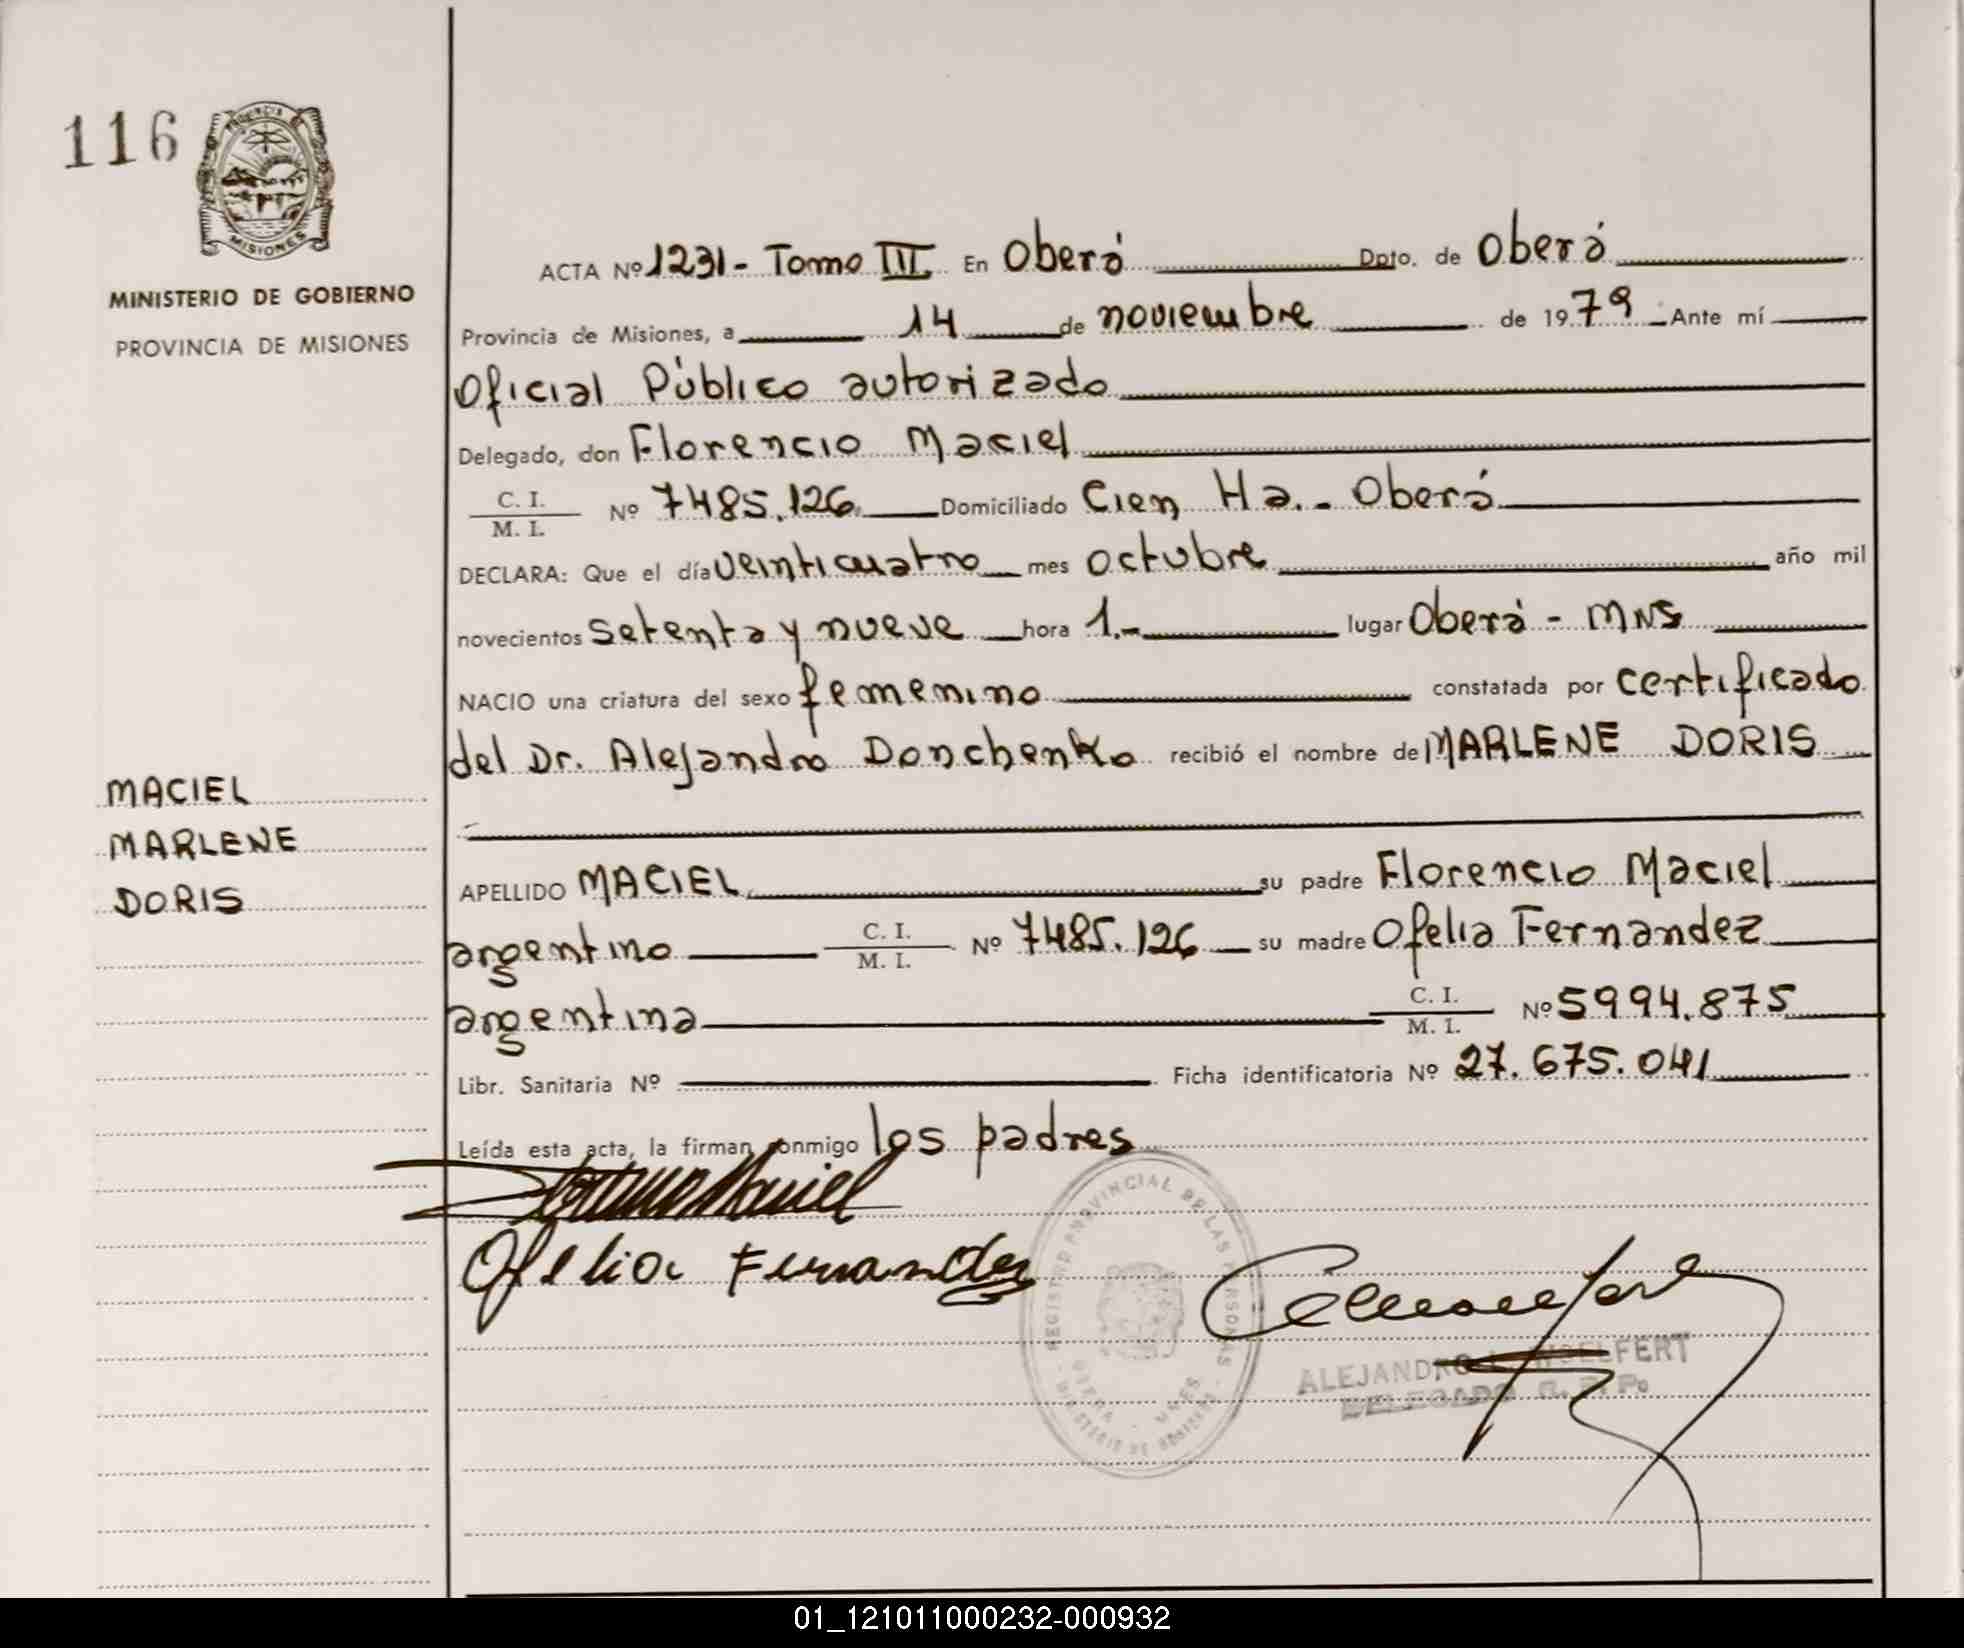 116
PROVINCIA
MISIONES
MINISTERIO DE GOBIERNO
PROVINCIA DE MISIONES
MACIEL
MARLENE
DORIS
ACTA Nº 1231 - Tomo III En Oberá Dpto. de Oberá
Provincia de Misiones, a 14 de noviembre de 1979 Ante mí
Oficial Público autorizado
Delegado, don Florencio Maciel
C. I.
M. I. Nº 7485.126 Domiciliado Cien Ha. - Oberá
DECLARA: Que el día veinticuatro mes octubre año mil
novecientos setenta y nueve hora 1.- lugar Oberá - MNS
NACIO una criatura del sexo femenino constatada por certificado
del Dr. Alejandro Donchenko recibió el nombre de MARLENE DORIS
APELLIDO MACIEL su padre Florencio Maciel
argentino C. I.
M. I. Nº 7485.126 su madre Ofelia Fernandez
argentina C. I.
M. I. Nº 5994.875
Libr. Sanitaria Nº Ficha identificatoria Nº 27.675.041
Leída esta acta, la firman conmigo los padres
Maciel
Ofelia Fernandez
REGISTRO PROVINCIAL DE LAS PERSONAS
MINISTERIO DE GOBIERNO
ALEJANDRO
DELEGADO R. P. P.
01_121011000232-000932